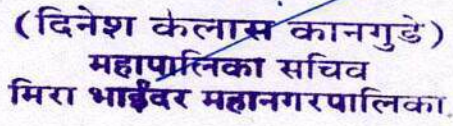 (दिनेश कैलास कानगुडे)
महापालिका सचिव
मिरा भाईंदर महानगरपालिका.